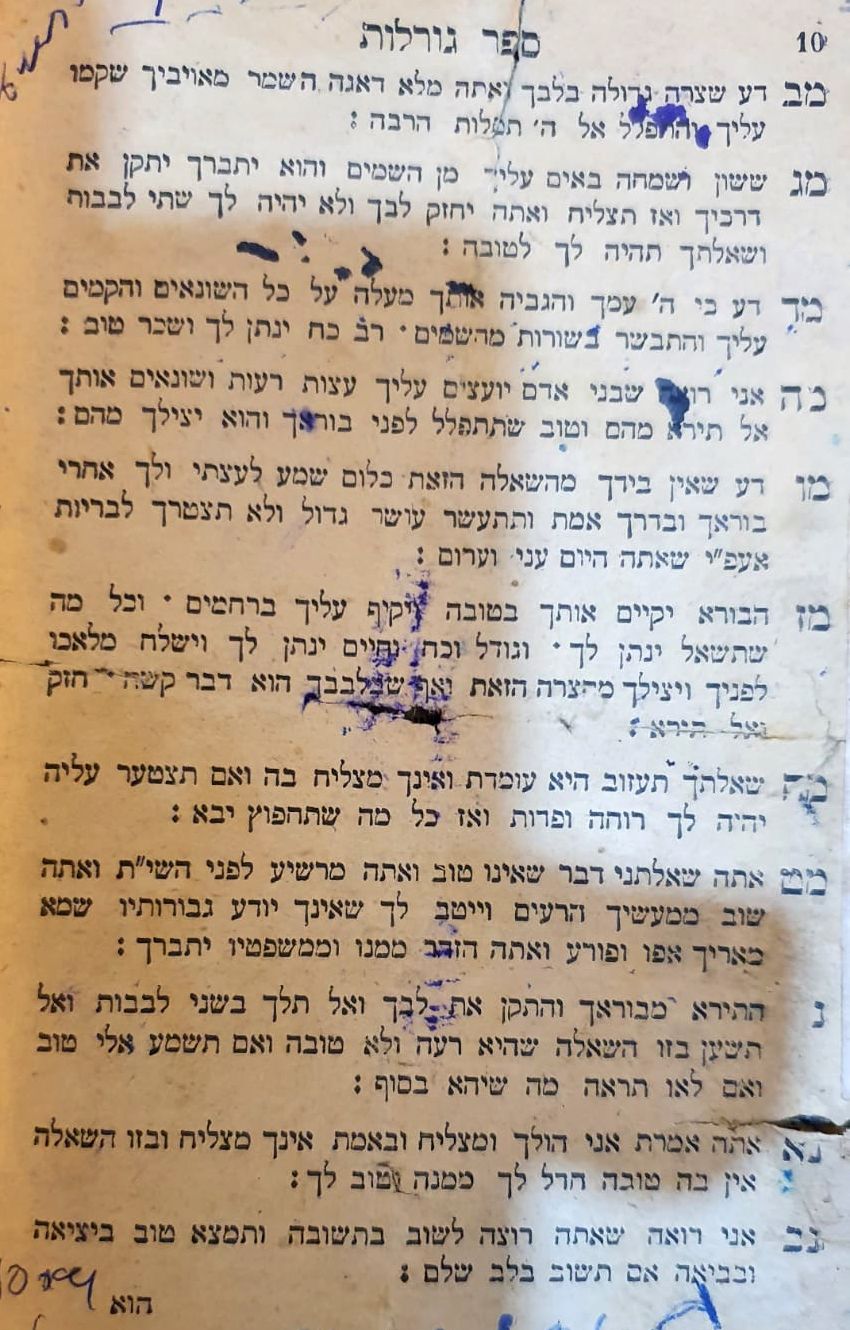 10 ספר גורלות
מב דע שצרה גדולה בלבך ואתה מלא דאגה השמר מאויביך שקמו
עליך והתפלל אל ה' תפלות הרבה :
מג ששון ושמחה באים עליך מן השמים והוא יתברך יתקן את
דרכיך ואז תצליח ואתה יחזק לבך ולא יהיה לך שתי לבבות
ושאלתך תהיה לך לטובה :
מד דע כי ה' עמך והגביה אותך מעלה על כל השונאים והקמים
עליך והתבשר בשורות מהשמים · רב כח ינתן לך ושכר טוב :
מה אני רואה שבני אדם יועצים עליך עצות רעות ושונאים אותך
אל תירא מהם וטוב שתתפלל לפני בוראך והוא יצילך מהם :
מו דע שאין בידך מהשאלה הזאת כלום שמע לעצתי ולך אחרי
בוראך ובדרך אמת ותתעשר עושר גדול ולא תצטרך לבריות
אעפ"י שאתה היום עני וערום :
מז הבורא יקיים אותך בטובה ויקיף עליך ברחמים · וכל מה
שתשאל ינתן לך · וגודל וכח וחיים ינתן לך וישלח מלאכו
לפניך ויצילך מהצרה הזאת ואף שבלבבך הוא דבר קשה · חזק
ואל תירא :
מח שאלתך תעזוב היא עומדת ואינך מצליח בה ואם תצטער עליה
יהיה לך רוחה ופדות ואז כל מה שתחפוץ יבא :
מט אתה שאלתני דבר שאינו טוב ואתה מרשיע לפני השי"ת ואתה
שוב ממעשיך הרעים וייטב לך שאינך יודע גבורותיו שמא
מאריך אפו ופורע ואתה הזהר ממנו וממשפטיו יתברך :
נ התירא מבוראך והתקן את לבך ואל תלך בשני לבבות ואל
תשען בזו השאלה שהיא רעה ולא טובה ואם תשמע אלי טוב
ואם לאו תראה מה שיהא בסוף :
נא אתה אמרת אני הולך ומצליח ובאמת אינך מצליח ובזו השאלה
אין בה טובה חדל לך ממנה וטוב לך :
נב אני רואה שאתה רוצה לשוב בתשובה ותמצא טוב ביציאה
ובביאה אם תשוב בלב שלם :
הוא